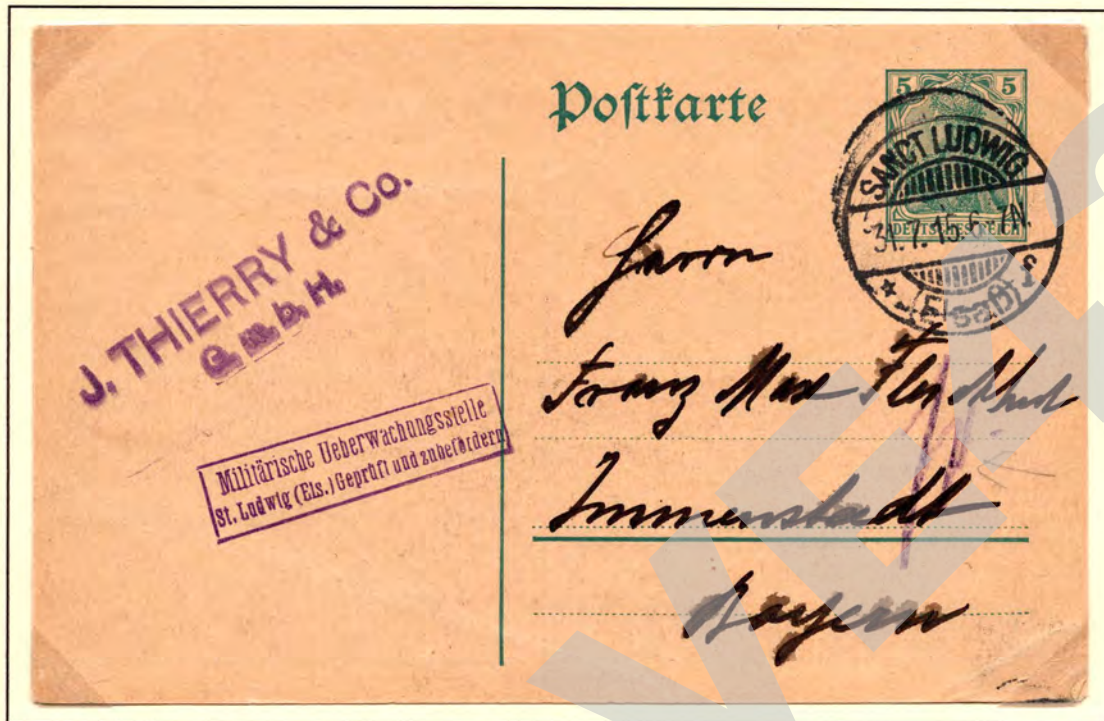 Postkarte
5 5
DEUTSCHES REICH
SANCT LUDWIG
31.7.15.6-7N.
(Elsaß)
J. THIERRY & Co.
G.m.b.H.
Militärische Ueberwachungsstelle
St. Ludwig (Els.) Geprüft und zu befördern
Herrn
Franz Max
Immenstadt
Bayern